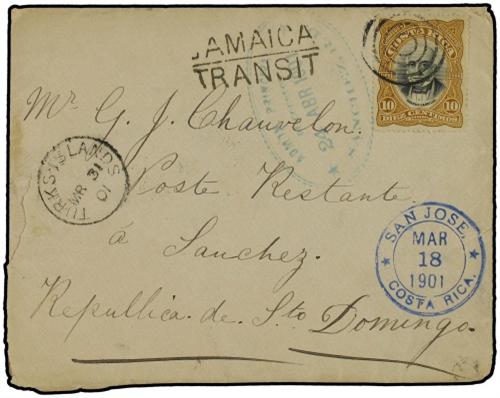 JAMAICA
TRANSIT
COSTA RICA
10 10
DIEZ CENTIMOS
2 ABR
Mr G. J. Chauvelon.
TURKS-ISLANDS
MR 31
01
Poste Restante
á Sanchez.
SAN JOSE.
MAR
18
1901
COSTA RICA.
Republlica. de. Sto Domingo.